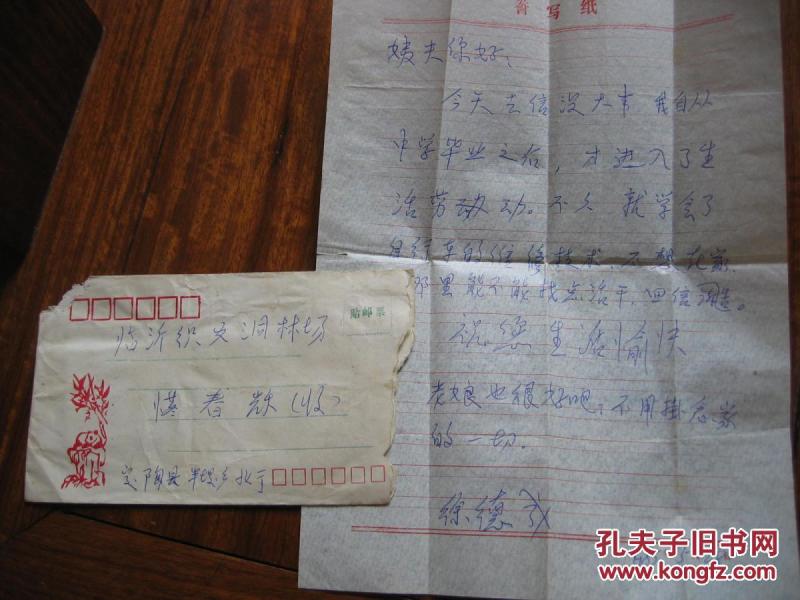 书写纸
姨夫你好:
今天去信没大事 我自从
中学毕业之后，才进入了生
活劳动。不久 就学会了
自行车的维修技术，不想在家
那里能不能找点活干，回信
祝您生活愉快
老娘也很好吧，不用掛念家
的一切。
徐德
贴邮票
临沂织女洞林场
春 (收)
县
孔夫子旧书网
www.kongfz.com